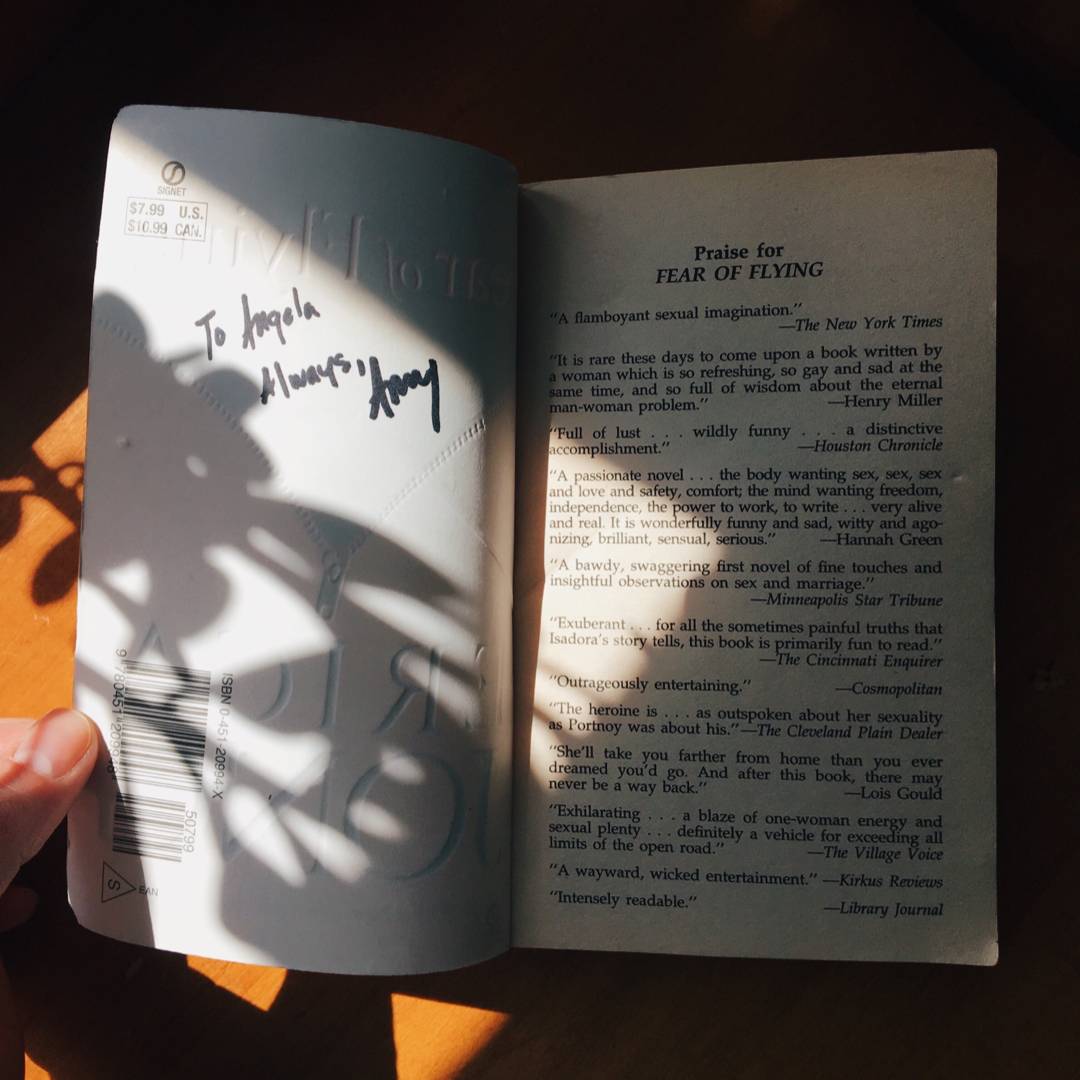 SIGNET
$7.99 U.S.
$10.99 CAN.
To Angela
Always,
ISBN 0-451-20994-X
50799
S
EAN
Praise for
FEAR OF FLYING
"A flamboyant sexual imagination."
—The New York Times
"It is rare these days to come upon a book written by
a woman which is so refreshing, so gay and sad at the
same time, and so full of wisdom about the eternal
man-woman problem." —Henry Miller
"Full of lust . . . wildly funny . . . a distinctive
accomplishment." —Houston Chronicle
"A passionate novel . . . the body wanting sex, sex, sex
and love and safety, comfort; the mind wanting freedom,
independence, the power to work, to write . . . very alive
and real. It is wonderfully funny and sad, witty and ago-
nizing, brilliant, sensual, serious." —Hannah Green
"A bawdy, swaggering first novel of fine touches and
insightful observations on sex and marriage."
—Minneapolis Star Tribune
"Exuberant . . . for all the sometimes painful truths that
Isadora's story tells, this book is primarily fun to read."
—The Cincinnati Enquirer
"Outrageously entertaining." —Cosmopolitan
"The heroine is . . . as outspoken about her sexuality
as Portnoy was about his."—The Cleveland Plain Dealer
"She'll take you farther from home than you ever
dreamed you'd go. And after this book, there may
never be a way back." —Lois Gould
"Exhilarating . . . a blaze of one-woman energy and
sexual plenty . . . definitely a vehicle for exceeding all
limits of the open road." —The Village Voice
"A wayward, wicked entertainment." —Kirkus Reviews
"Intensely readable." —Library Journal